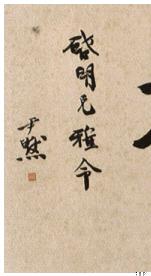 啓明兄雅令
尹默